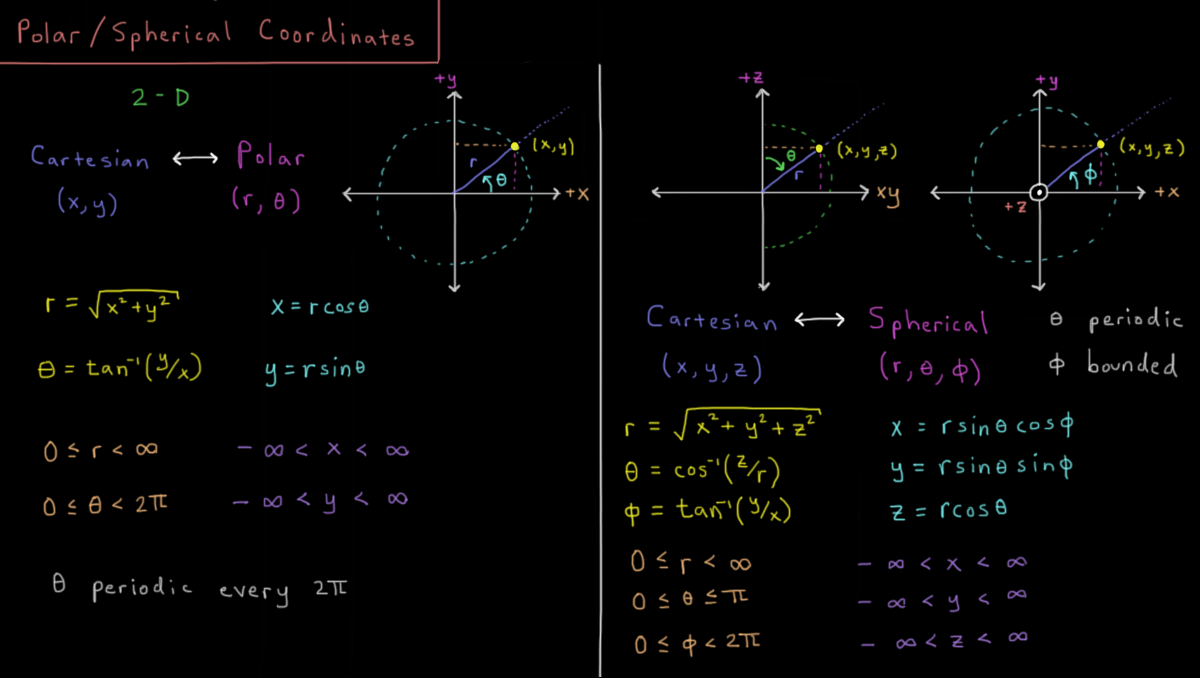 Polar/Spherical Coordinates
2-D
Cartesian ⟷ Polar
(x,y) (r, θ)
+y
(x,y)
r
θ
+x
r = √x²+y²
x = r cos θ
θ = tan⁻¹(y/x)
y = r sin θ
0 ≤ r < ∞
- ∞ < x < ∞
0 ≤ θ < 2π
- ∞ < y < ∞
θ periodic every 2π
+z
θ
(x,y,z)
r
xy
+y
(x,y,z)
ϕ
+z
+x
Cartesian ⟷ Spherical
(x,y,z) (r, θ, ϕ)
θ periodic
ϕ bounded
r = √x²+y²+z²
x = r sin θ cos ϕ
θ = cos⁻¹(z/r)
y = r sin θ sin ϕ
ϕ = tan⁻¹(y/x)
z = r cos θ
0 ≤ r < ∞
- ∞ < x < ∞
0 ≤ θ ≤ π
- ∞ < y < ∞
0 ≤ ϕ < 2π
- ∞ < z < ∞